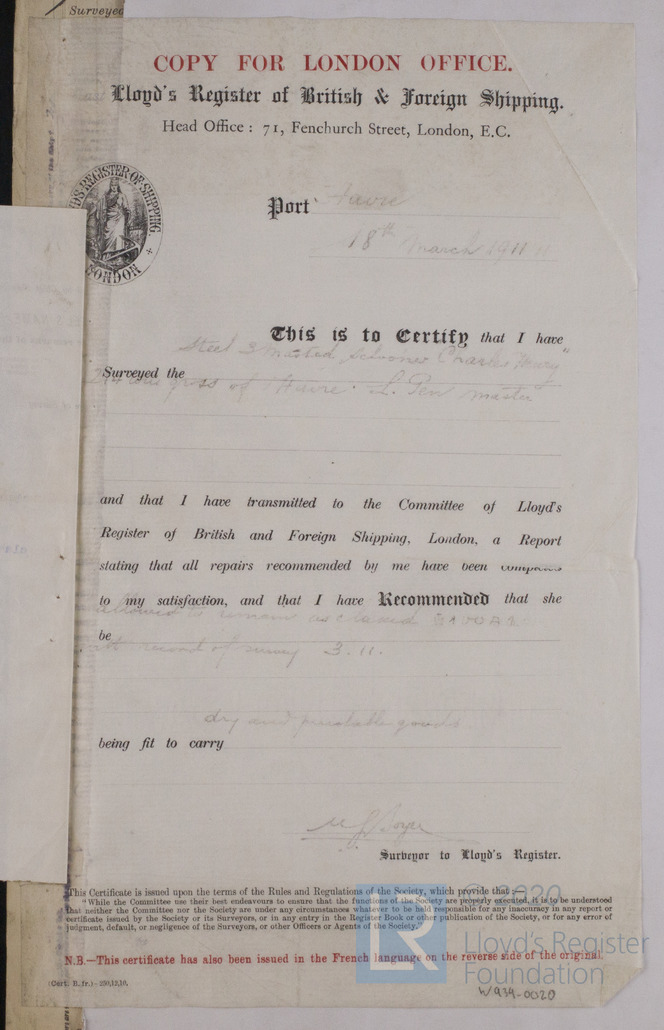 Surveyed
COPY FOR LONDON OFFICE.
Lloyd's Register of British & Foreign Shipping.
Head Office: 71, Fenchurch Street, London, E.C.
LLOYD'S REGISTER OF SHIPPING
LONDON
Port Havre
18th March 1911
This is to Certify that I have
Steel 3 Masted Schooner "Charles Henry"
Surveyed the
gross of Havre. L. master
and that I have transmitted to the Committee of Lloyd's
Register of British and Foreign Shipping, London, a Report
stating that all repairs recommended by me have been
to my satisfaction, and that I have Recommended that she
allowed to remain as classed
be
with record of survey 3.11.
dry and perishable goods
being fit to carry
Surveyor to Lloyd's Register.
This Certificate is issued upon the terms of the Rules and Regulations of the Society, which provide that :—
"While the Committee use their best endeavours to ensure that the functions of the Society are properly executed, it is to be understood
that neither the Committee nor the Society are under any circumstances whatever to be held responsible for any inaccuracy in any report or
certificate issued by the Society or its Surveyors, or in any entry in the Register Book or other publication of the Society, or for any error of
judgment, default, or negligence of the Surveyors, or other Officers or Agents of the Society."
N.B.—This certificate has also been issued in the French language on the reverse side of the original.
(Cert. B. fr.)—250,12,10.
© 2020
LR
Lloyd's Register
Foundation
W934-0020